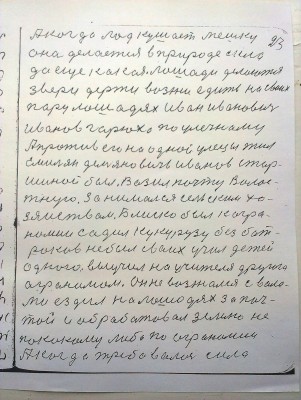 23
А когда подкушает мешку
она делается в природе сило
да еще какая. Лошади делаются
звери держи возжи едить на своих
пару лошадях Иван Иванович
Иванов гарюха по уличному
А против его на одной улецы жил
Емильян Демянович Иванов стар-
шиной был. Возил почту Волос-
тную. Занимался сельским хо-
зяйством. Близко был к агра-
номии садил кукурузу без бат-
раков небыл своих учил детей
одного, выучил на учителя другого
аграномом. Он не возгался с вало-
ми ездил на лошодях за поч-
той и обрабатовал землю не
пококому либо по аграномии
А когда требовался сило